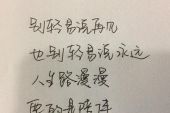 别轻易说再见
也别轻易说永远
人生路漫漫
要的是陪伴